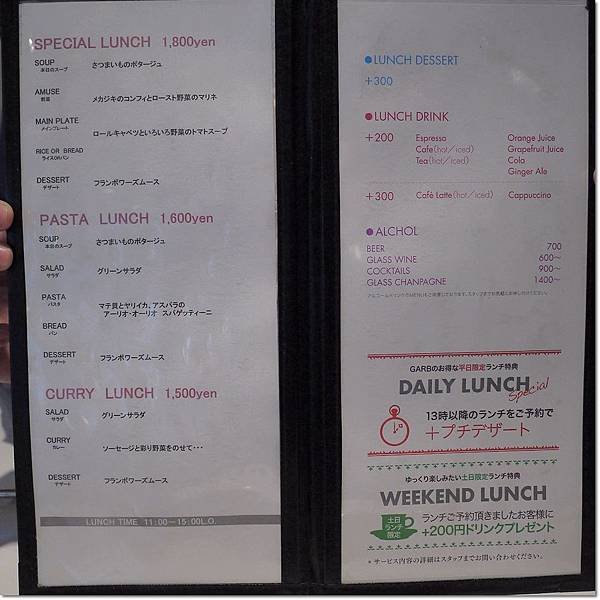 SPECIAL LUNCH 1,800yen
SOUP
本日のスープ
さつまいものポタージュ
AMUSE
前菜
メカジキのコンフィとロースト野菜のマリネ
MAIN PLATE
メインプレート
ロールキャベツといろいろ野菜のトマトスープ
RICE OR BREAD
ライスORパン
DESSERT
デザート
フランボワーズムース
PASTA LUNCH 1,600yen
SOUP
本日のスープ
さつまいものポタージュ
SALAD
サラダ
グリーンサラダ
PASTA
パスタ
マテ貝とヤリイカ、アスパラの
アーリオ・オーリオ スパゲッティーニ
BREAD
パン
DESSERT
デザート
フランボワーズムース
CURRY LUNCH 1,500yen
SALAD
サラダ
グリーンサラダ
CURRY
カレー
ソーセージと彩り野菜をのせて・・・
DESSERT
デザート
フランボワーズムース
LUNCH TIME 11:00-15:00L.O.
●LUNCH DESSERT
+300
●LUNCH DRINK
+200 Espresso Orange Juice
Cafe(hot/iced) Grapefruit Juice
Tea(hot/iced) Cola
Ginger Ale
+300 Café Latte(hot/iced) Cappuccino
●ALCHOL
BEER 700
GLASS WINE 600~
COCKTAILS 900~
GLASS CHANPAGNE 1400~
GARBのお得な平日限定ランチ特典
DAILY LUNCH
Special
13時以降のランチをご予約で
+プチデザート
ゆっくり楽しみたい土日限定ランチ特典
WEEKEND LUNCH
土日
ランチ
限定
ランチご予約頂きましたお客様に
+200円ドリンクプレゼント
* サービス内容の詳細はスタッフまでお問い合わせください。